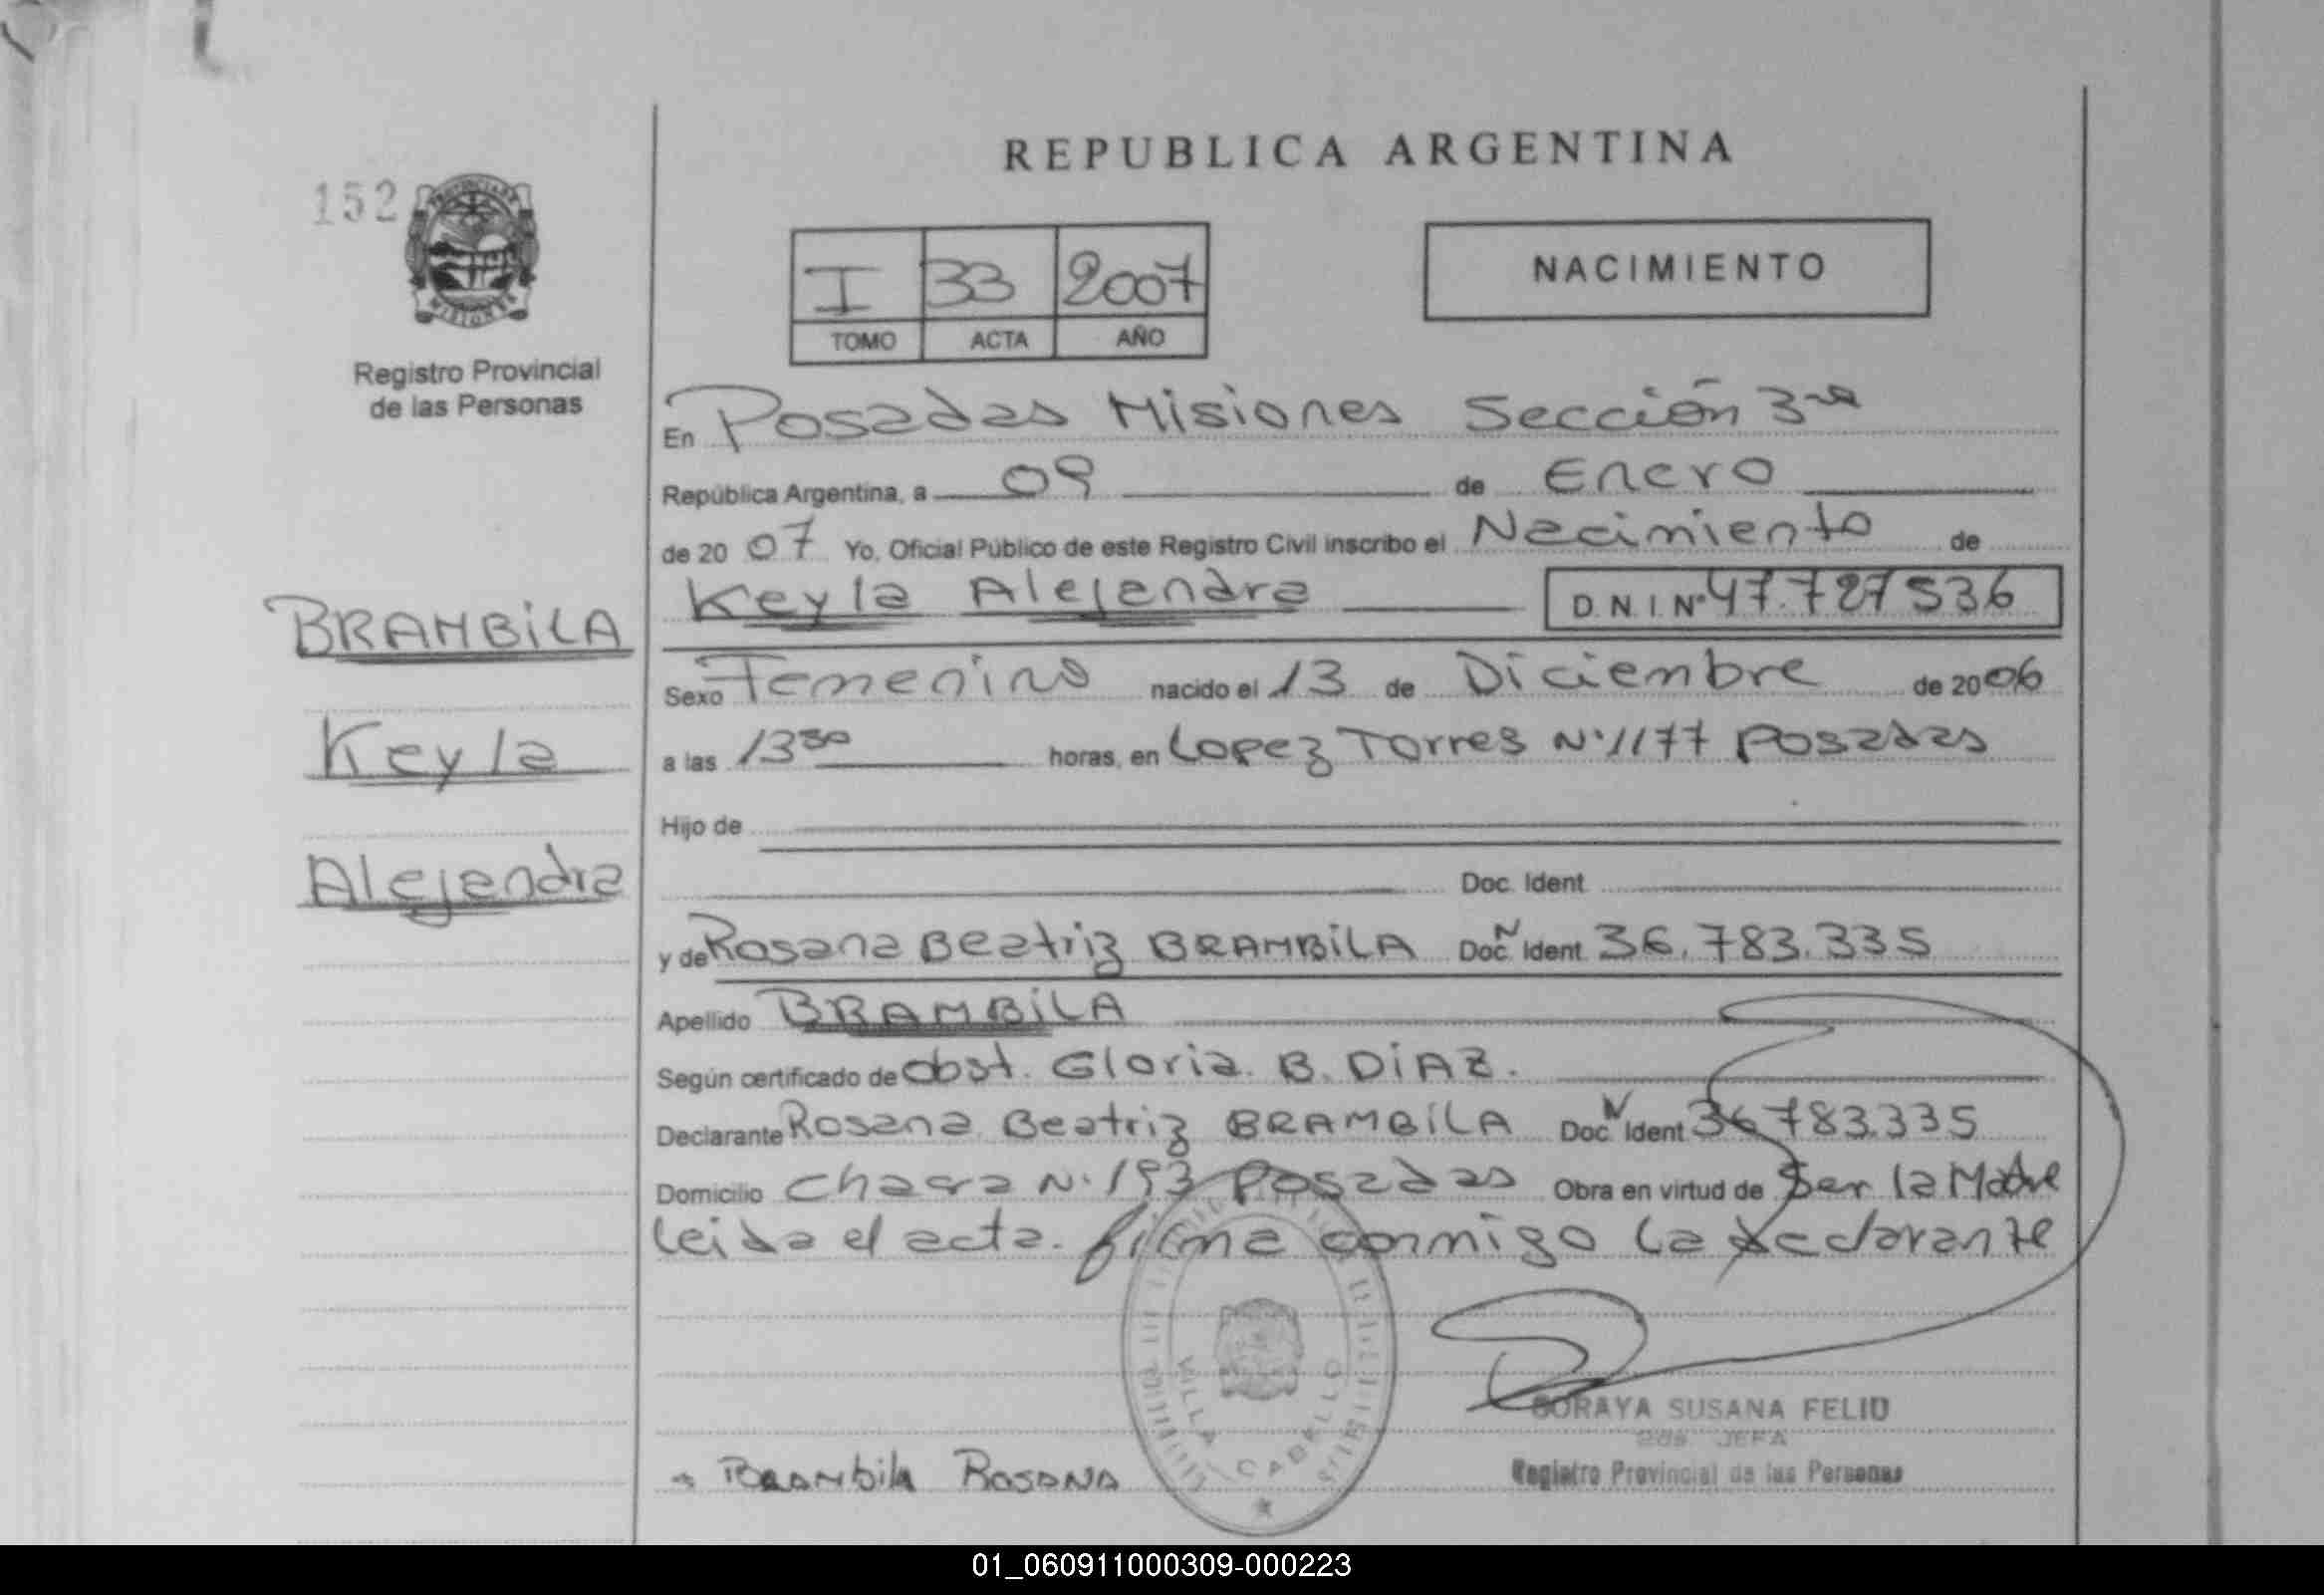 REPUBLICA ARGENTINA
152
PROVINCIA DE
MISIONES
Registro Provincial
de las Personas
I 33 2007
TOMO ACTA AÑO
NACIMIENTO
En Posadas Misiones Sección 3ra
República Argentina, a 09 de Enero
de 20 07 Yo, Oficial Público de este Registro Civil inscribo el Nacimiento de
Keyla Alejandra D.N.I. Nº 47.727536
BRAMBiLA
Keyla
Alejandra
Sexo Femenino nacido el 13 de Diciembre de 2006
a las 13 30 horas, en Lopez Torres Nº 1177 Posadas
Hijo de
Doc. Ident.
y de Rosana Beatriz BRAMBiLA Doc. N Ident. 36.783.335
Apellido BRAMBiLA
Según certificado de Obst. Gloria B. DiAZ.
Declarante Rosana Beatriz BRAMBiLA Doc. N Ident. 36783.335
Domicilio Chacra Nº 193 Posadas Obra en virtud de Ser la Madre
leida el acta. firma conmigo la declarante
VILLA CABELLO
SORAYA SUSANA FELIU
2da JEFA
Registro Provincial de las Personas
Brambila Rosana
01_060911000309-000223